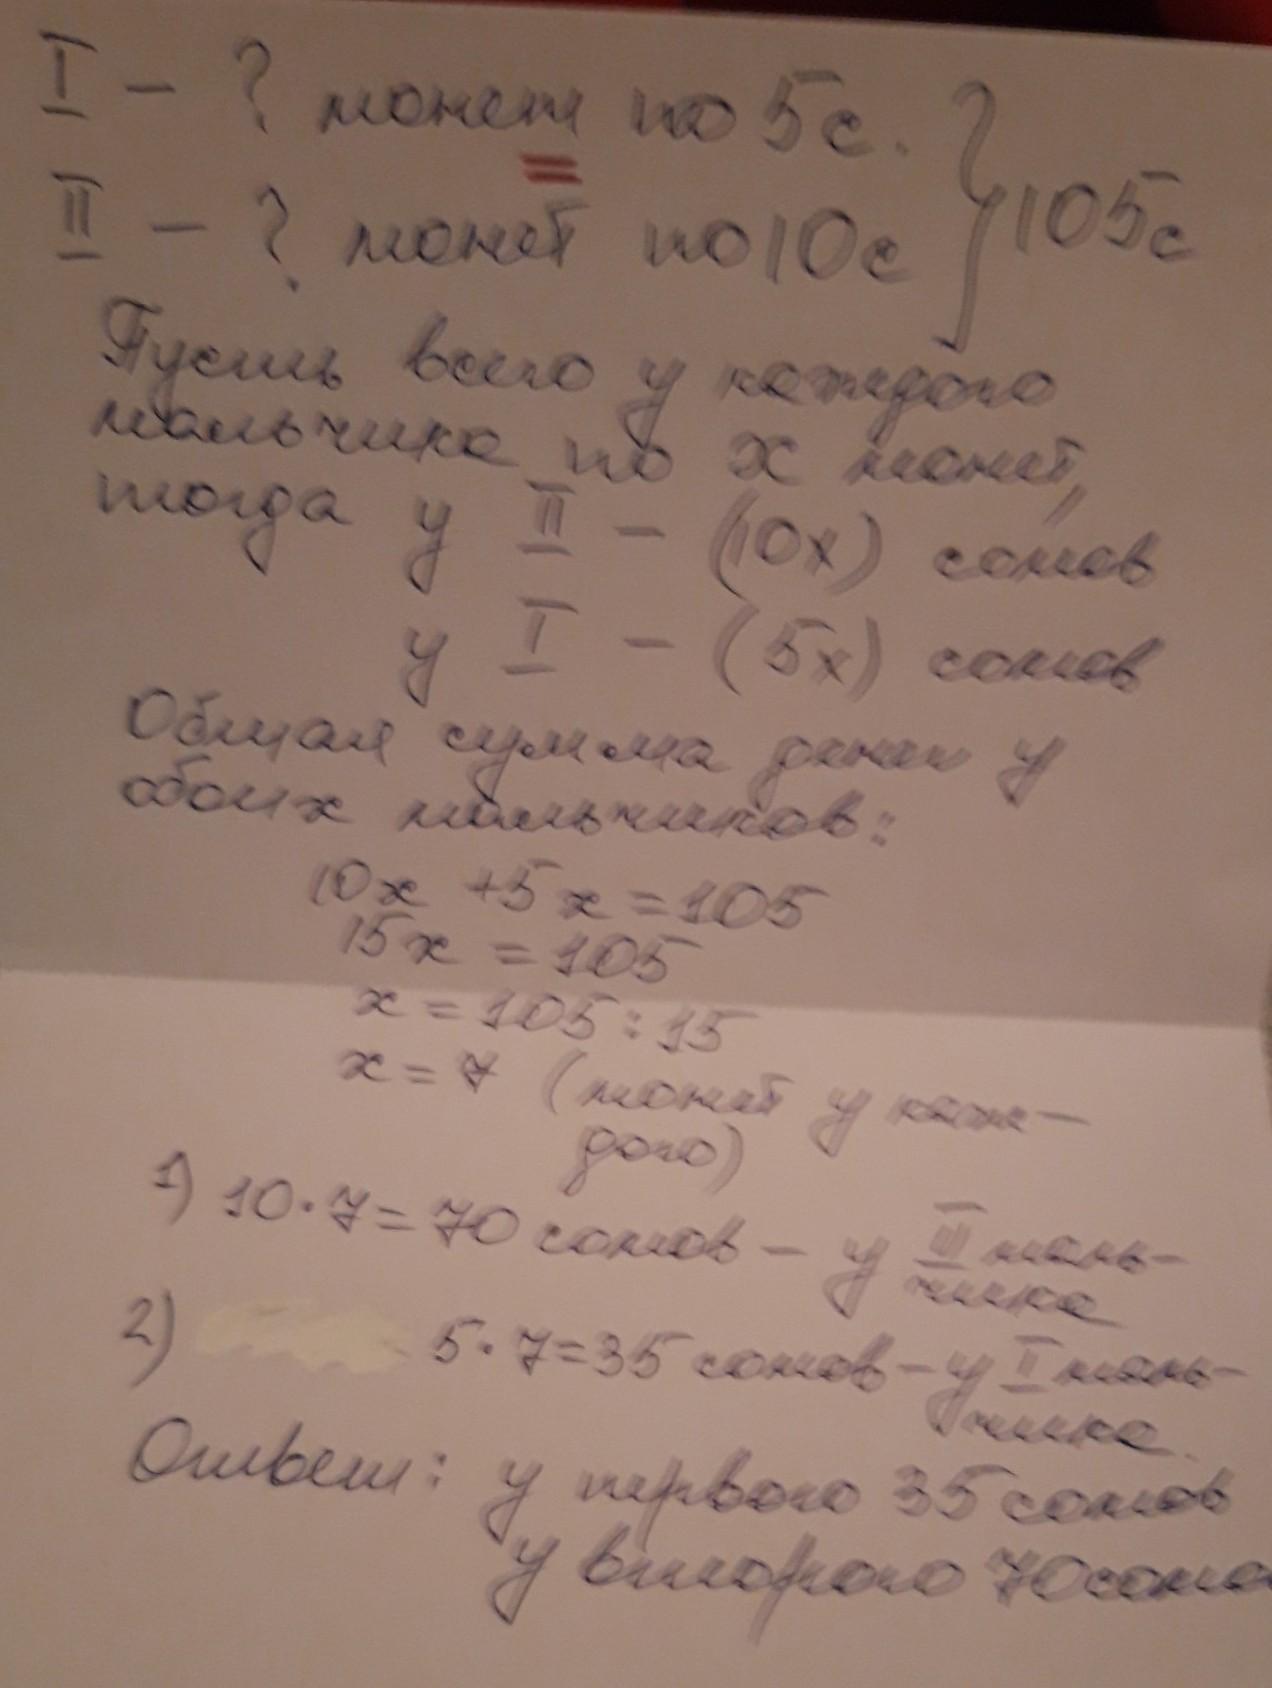 I – ? монет по 5с.
II – ? монет по 10с } 105с
Пусть всего у каждого
мальчика по x монет,
тогда у II – (10x) сомов
у I – (5x) сомов
Общая сумма денег у
обоих мальчиков:
10x + 5x = 105
15x = 105
x = 105 : 15
x = 7 (монет у каж-
дого)
1) 10 · 7 = 70 сомов – у II маль-
чика
2) 5 · 7 = 35 сомов – у I маль-
чика.
Ответ: у первого 35 сомов
у второго 70 сомо